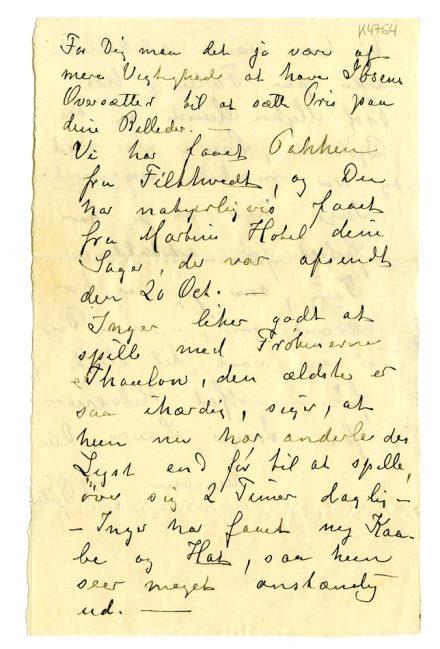 K4764
For Dig maa det jo være af
mere Vigtighed at have Ibsens
Oversætter til at sætte Pris paa
dine Billeder. —
Vi har faaet Pakken
fra Filtvedt, og Du
har naturligvis faaet
fra Martins Hotel dine
Sager, der var afsendt
den 20 Oct. —
Inger liker godt at
spille med Frøknerne
Thaulow, den ældste er
saa ihærdig, siger, at
hun nu har anderledes
Lyst end før til at spille,
över sig 2 Timer daglig —
— Inger har faaet ny Kaa-
be og Hat, saa hun
seer meget anstændig
ud. —